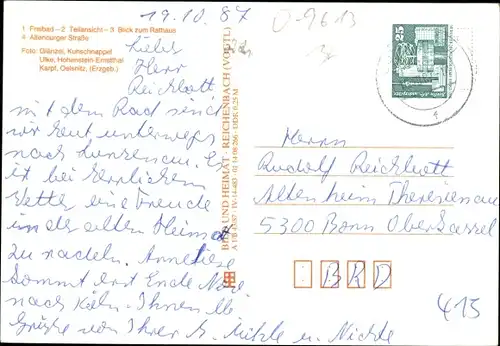 19.10.87
0-9613
1 Freibad – 2 Teilansicht – 3 Blick zum Rathaus
4 Altenburger Straße
Foto: Glänzel, Kuhschnappel
Ulke, Hohenstein-Ernstthal
Karpf, Oelsnitz, (Erzgeb.)
Liebes
Herr
Reichbott
mit dem Rad sind
wir heut unterwegs
nach Lunzenau. Es
ist bei herrlichem
Wetter eine Freude
in der alten Heimat
zu radeln. Anneliese
kommt erst Ende Nov
nach Köln. Ihnen
Grüße von Ihrer u. Nichte
BILD UND HEIMAT REICHENBACH (VOGTL)
25
Herrn
Rudolf Reichbott
Altenheim Theresienau
5300 Bonn Oberkassel
BRD
415